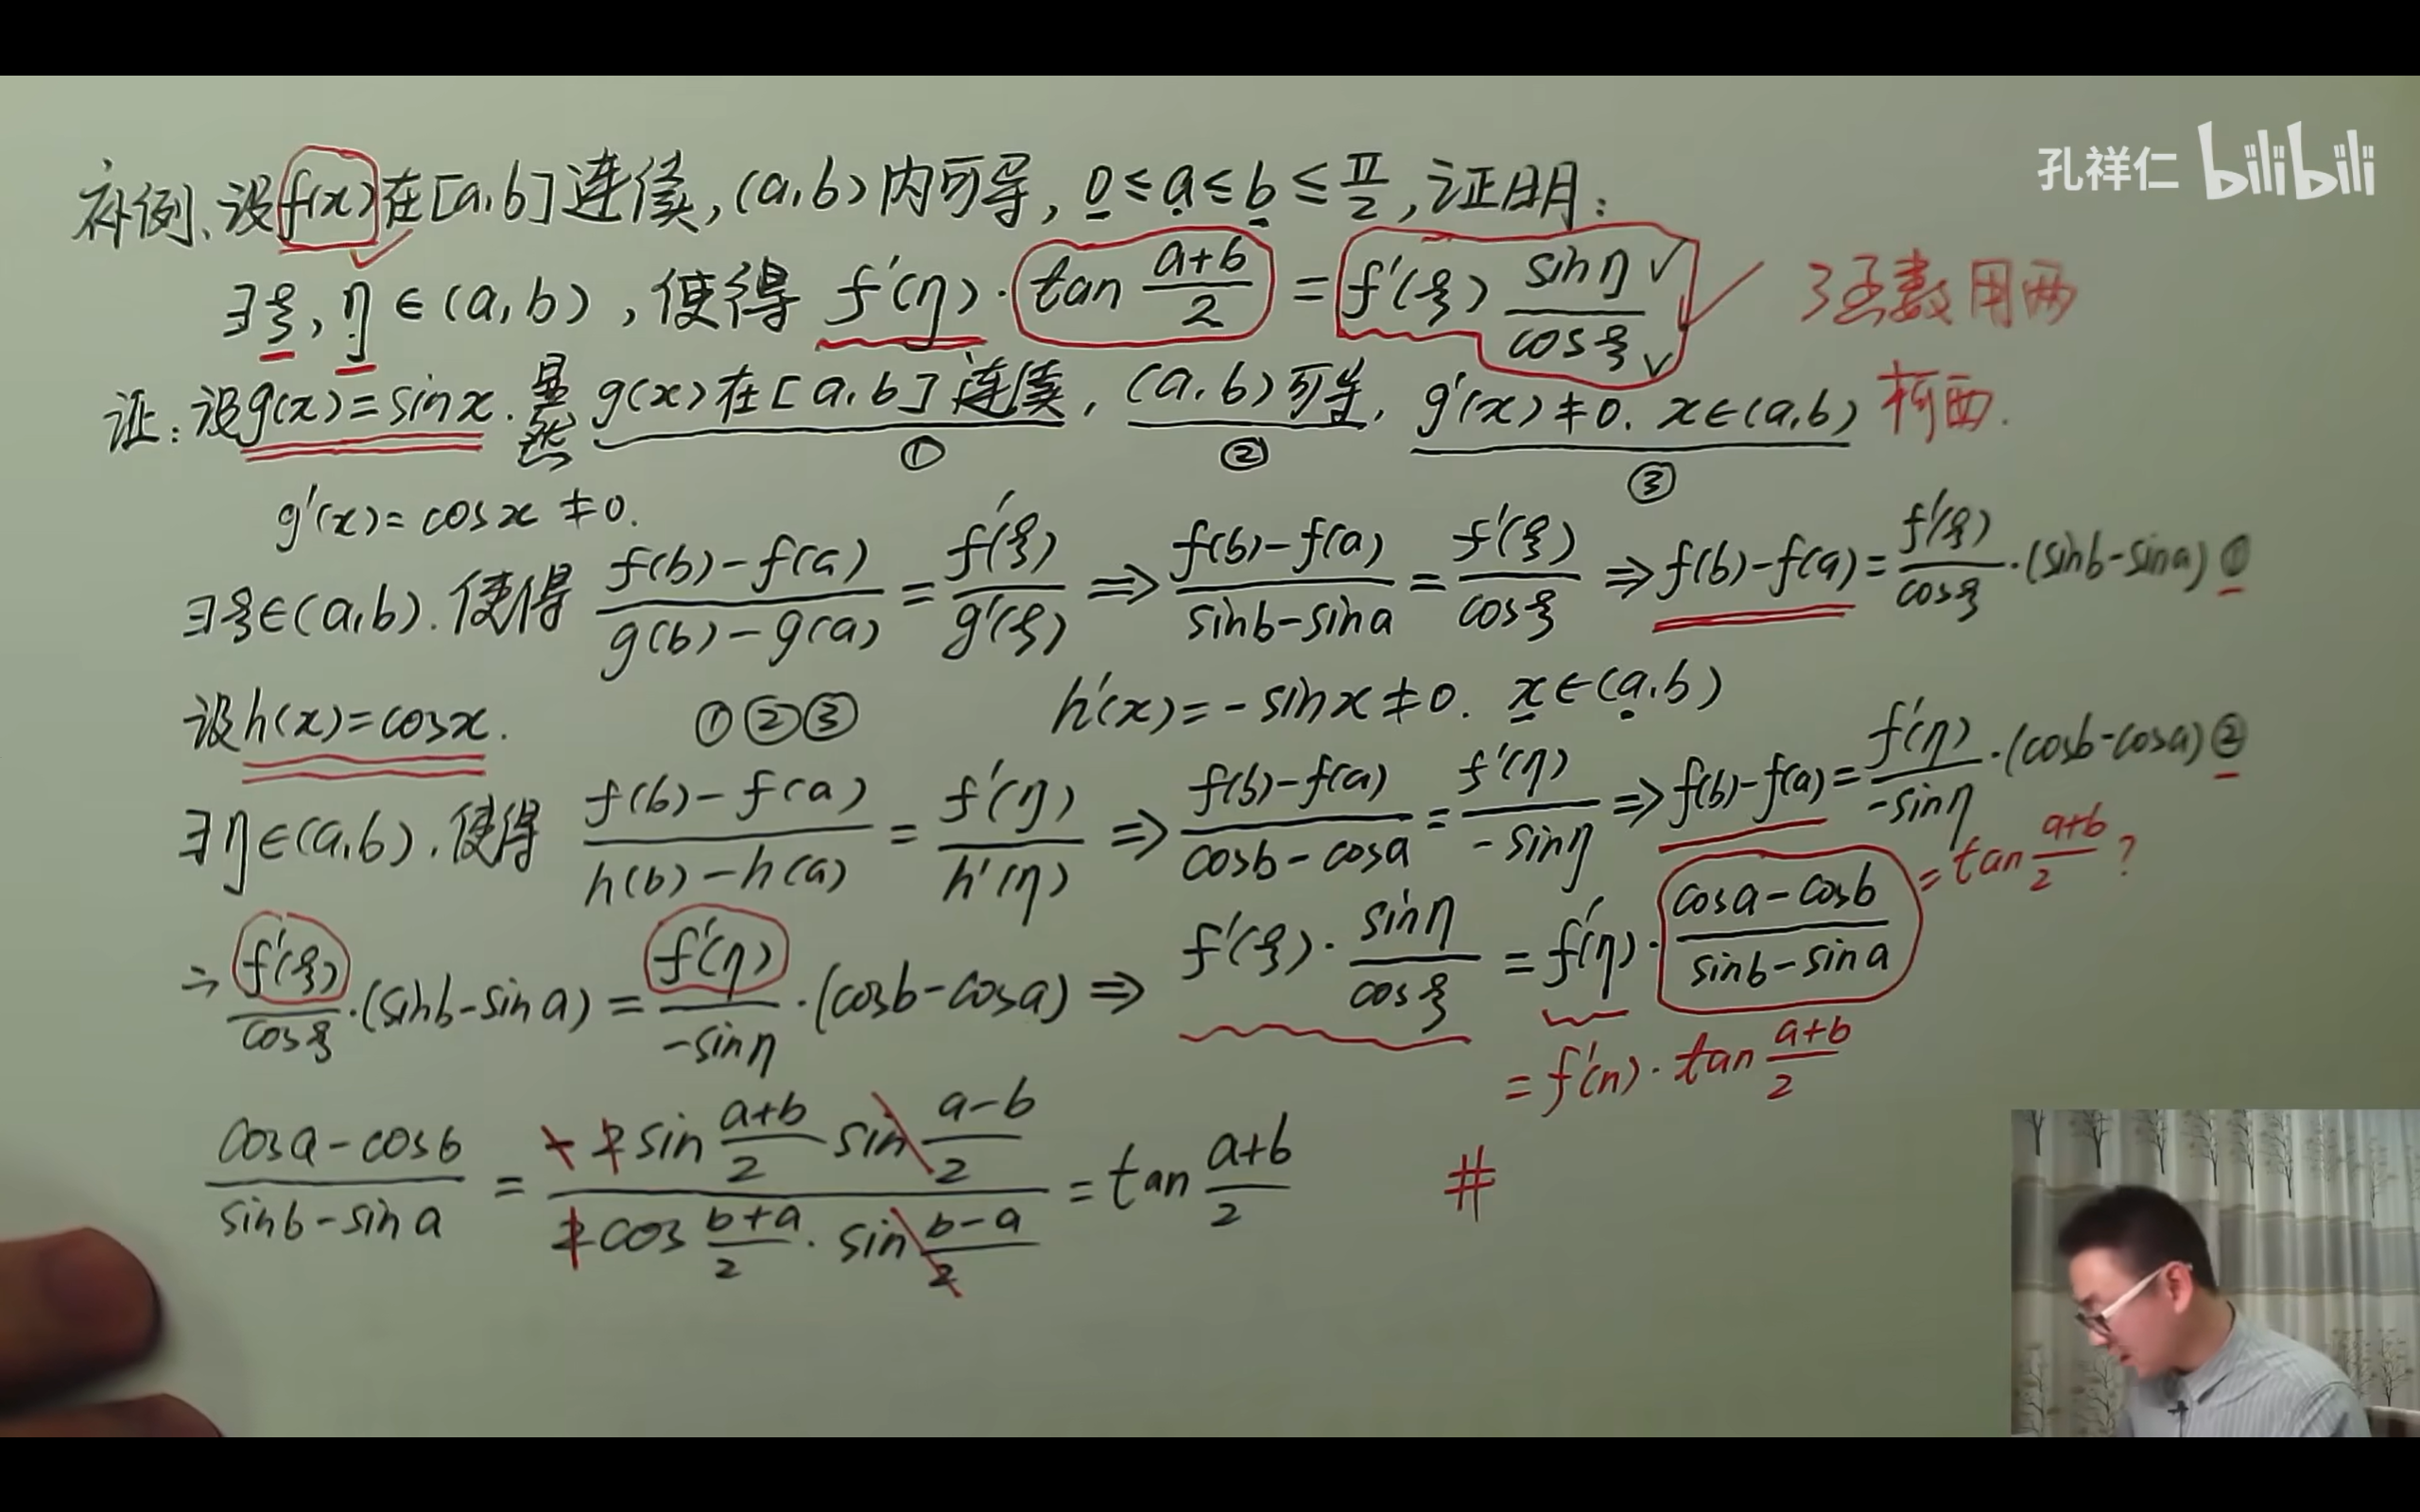 孔祥仁 bilibili
补例、设f(x)在[a,b]连续,(a,b)内可导, 0≤a≤b≤π/2,证明:
∃ξ,η∈(a,b),使得 f'(η)·tan (a+b)/2 = f'(ξ) sinη/cosξ
3函数用两
柯西.
证:设g(x)=sinx.显然 g(x)在[a,b]连续, (a,b)可导, g'(x)≠0. x∈(a,b)
① ② ③
g'(x)=cosx≠0.
∃ξ∈(a,b).使得 (f(b)-f(a))/(g(b)-g(a)) = f'(ξ)/g'(ξ) ⇒ (f(b)-f(a))/(sinb-sina) = f'(ξ)/cosξ ⇒ f(b)-f(a)= f'(ξ)/cosξ ·(sinb-sina) ①
设h(x)=cosx. ①②③ h'(x)=-sinx≠0. x∈(a,b)
∃η∈(a,b).使得 (f(b)-f(a))/(h(b)-h(a)) = f'(η)/h'(η) ⇒ (f(b)-f(a))/(cosb-cosa) = f'(η)/-sinη ⇒ f(b)-f(a)= f'(η)/-sinη ·(cosb-cosa) ②
⇒ f'(ξ)/cosξ ·(sinb-sina) = f'(η)/-sinη ·(cosb-cosa) ⇒ f'(ξ)· sinη/cosξ = f'(η)· (cosa-cosb)/(sinb-sina) = tan (a+b)/2 ?
= f'(η)·tan (a+b)/2
(cosa-cosb)/(sinb-sina) = (-2sin (a+b)/2 sin (a-b)/2)/(2cos (b+a)/2 · sin (b-a)/2) = tan (a+b)/2 #